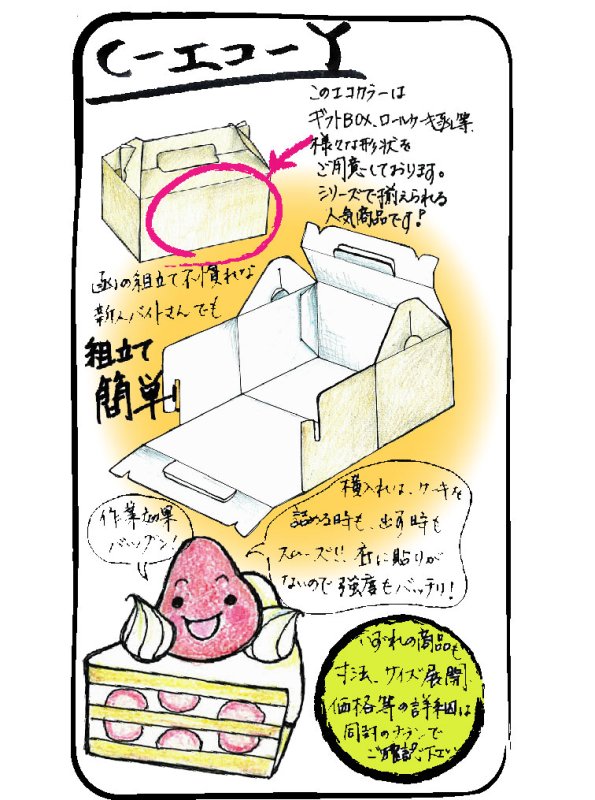 C-エコーY
このエコカラーは
ギフトBOX、ロールケーキ函等、
様々な形状を
ご用意しております。
シリーズで揃えられる
人気商品です!
函の組立て不慣れな
新人バイトさんでも
組立て
簡単
横入れは、ケーキを
詰める時も、出す時も
スムーズ!!底に貼りが
ないので強度もバッチリ!
作業効果
バツグン!
いずれの商品も
寸法、サイズ展開
価格等の詳細は
同封のチラシで
ご確認下さい